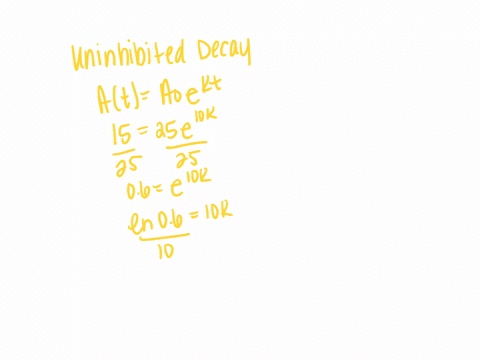 Uninhibited Decay
A(t) = A₀e^kt
15 = 25e^10k
25 25
0.6 = e^10k
ln 0.6 = 10k
10